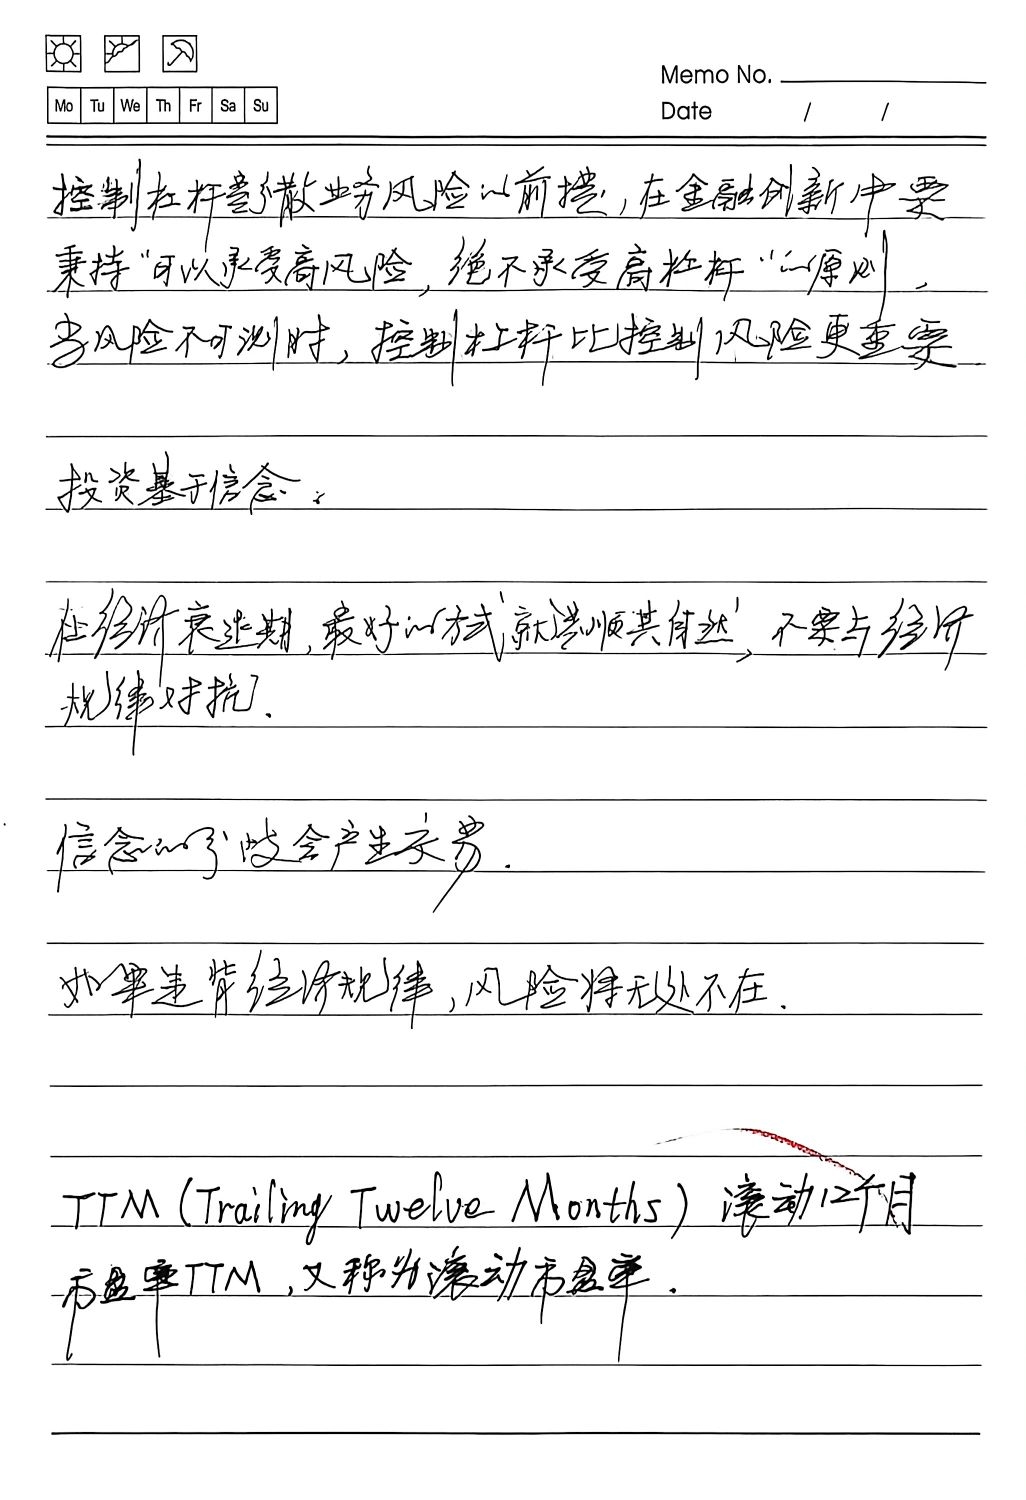 Memo No.
Mo Tu We Th Fr Sa Su
Date / /
控制杠杆是分散业务风险的前提，在金融创新中要
秉持“可以承受高风险，绝不承受高杠杆”的原则，
当风险不可测时，控制杠杆比控制风险更重要
投资基于信念。
在经济衰退期，最好的方式‘就是顺其自然’，不要与经济
规律对抗.
信念的分歧会产生交易.
如果违背经济规律，风险将无处不在.
TTM (Trailing Twelve Months) 滚动12个月
市盈率TTM，又称为滚动市盈率.